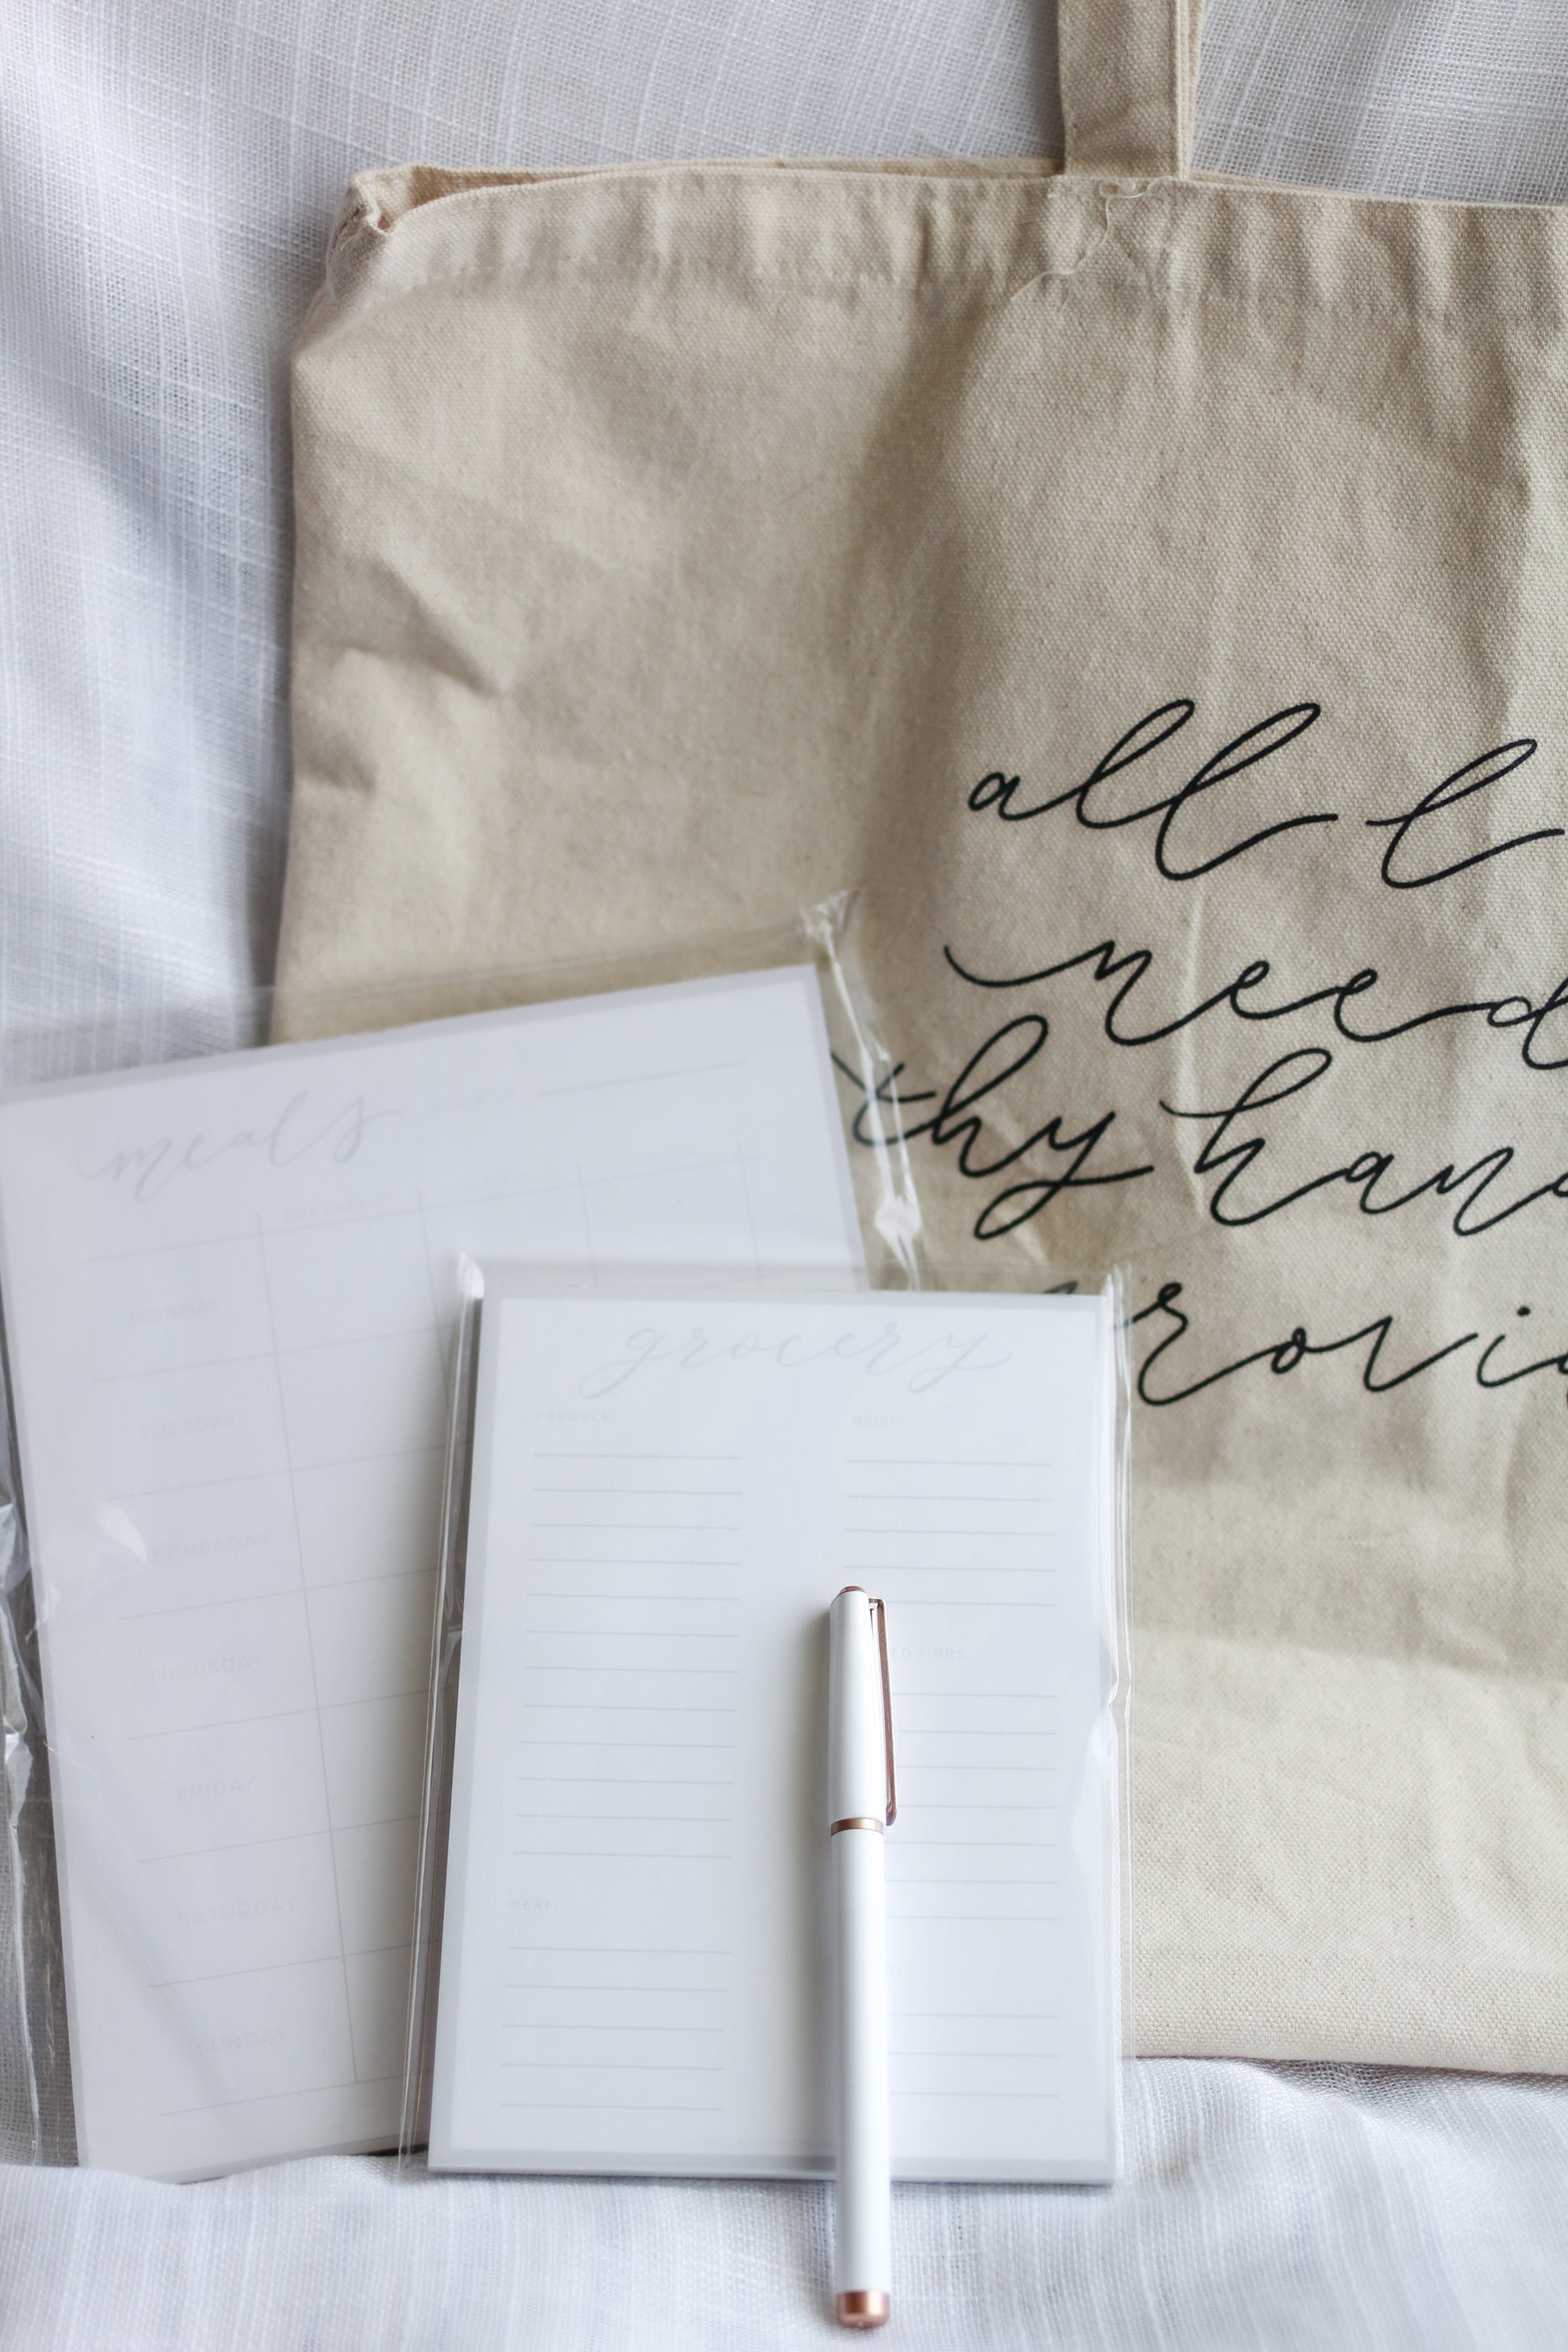 all I
need
thy hand
provid
meals
MONDAY
TUESDAY
WEDNESDAY
THURSDAY
FRIDAY
SATURDAY
SUNDAY
grocery
PRODUCE:
DAIRY:
ED + DRY:
MEAT: